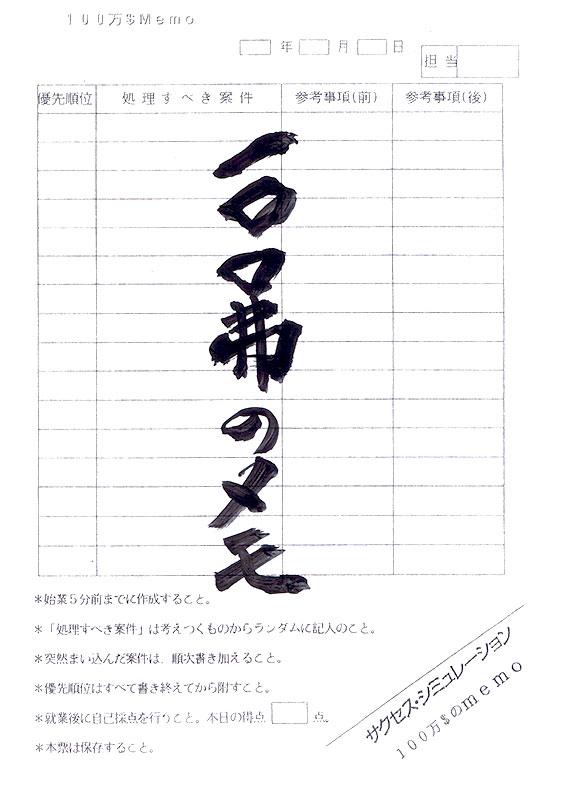 100万$Memo
年 月 日
担当
優先順位 処理すべき案件 参考事項(前) 参考事項(後)
一〇〇弗のメモ
*始業5分前までに作成すること。
*「処理すべき案件」は考えつくものからランダムに記入のこと。
*突然まい込んだ案件は、順次書き加えること。
*優先順位はすべて書き終えてから附すこと。
*就業後に自己採点を行うこと。本日の得点 点。
*本票は保存すること。
サクセス・シミュレーション
100万$のmemo